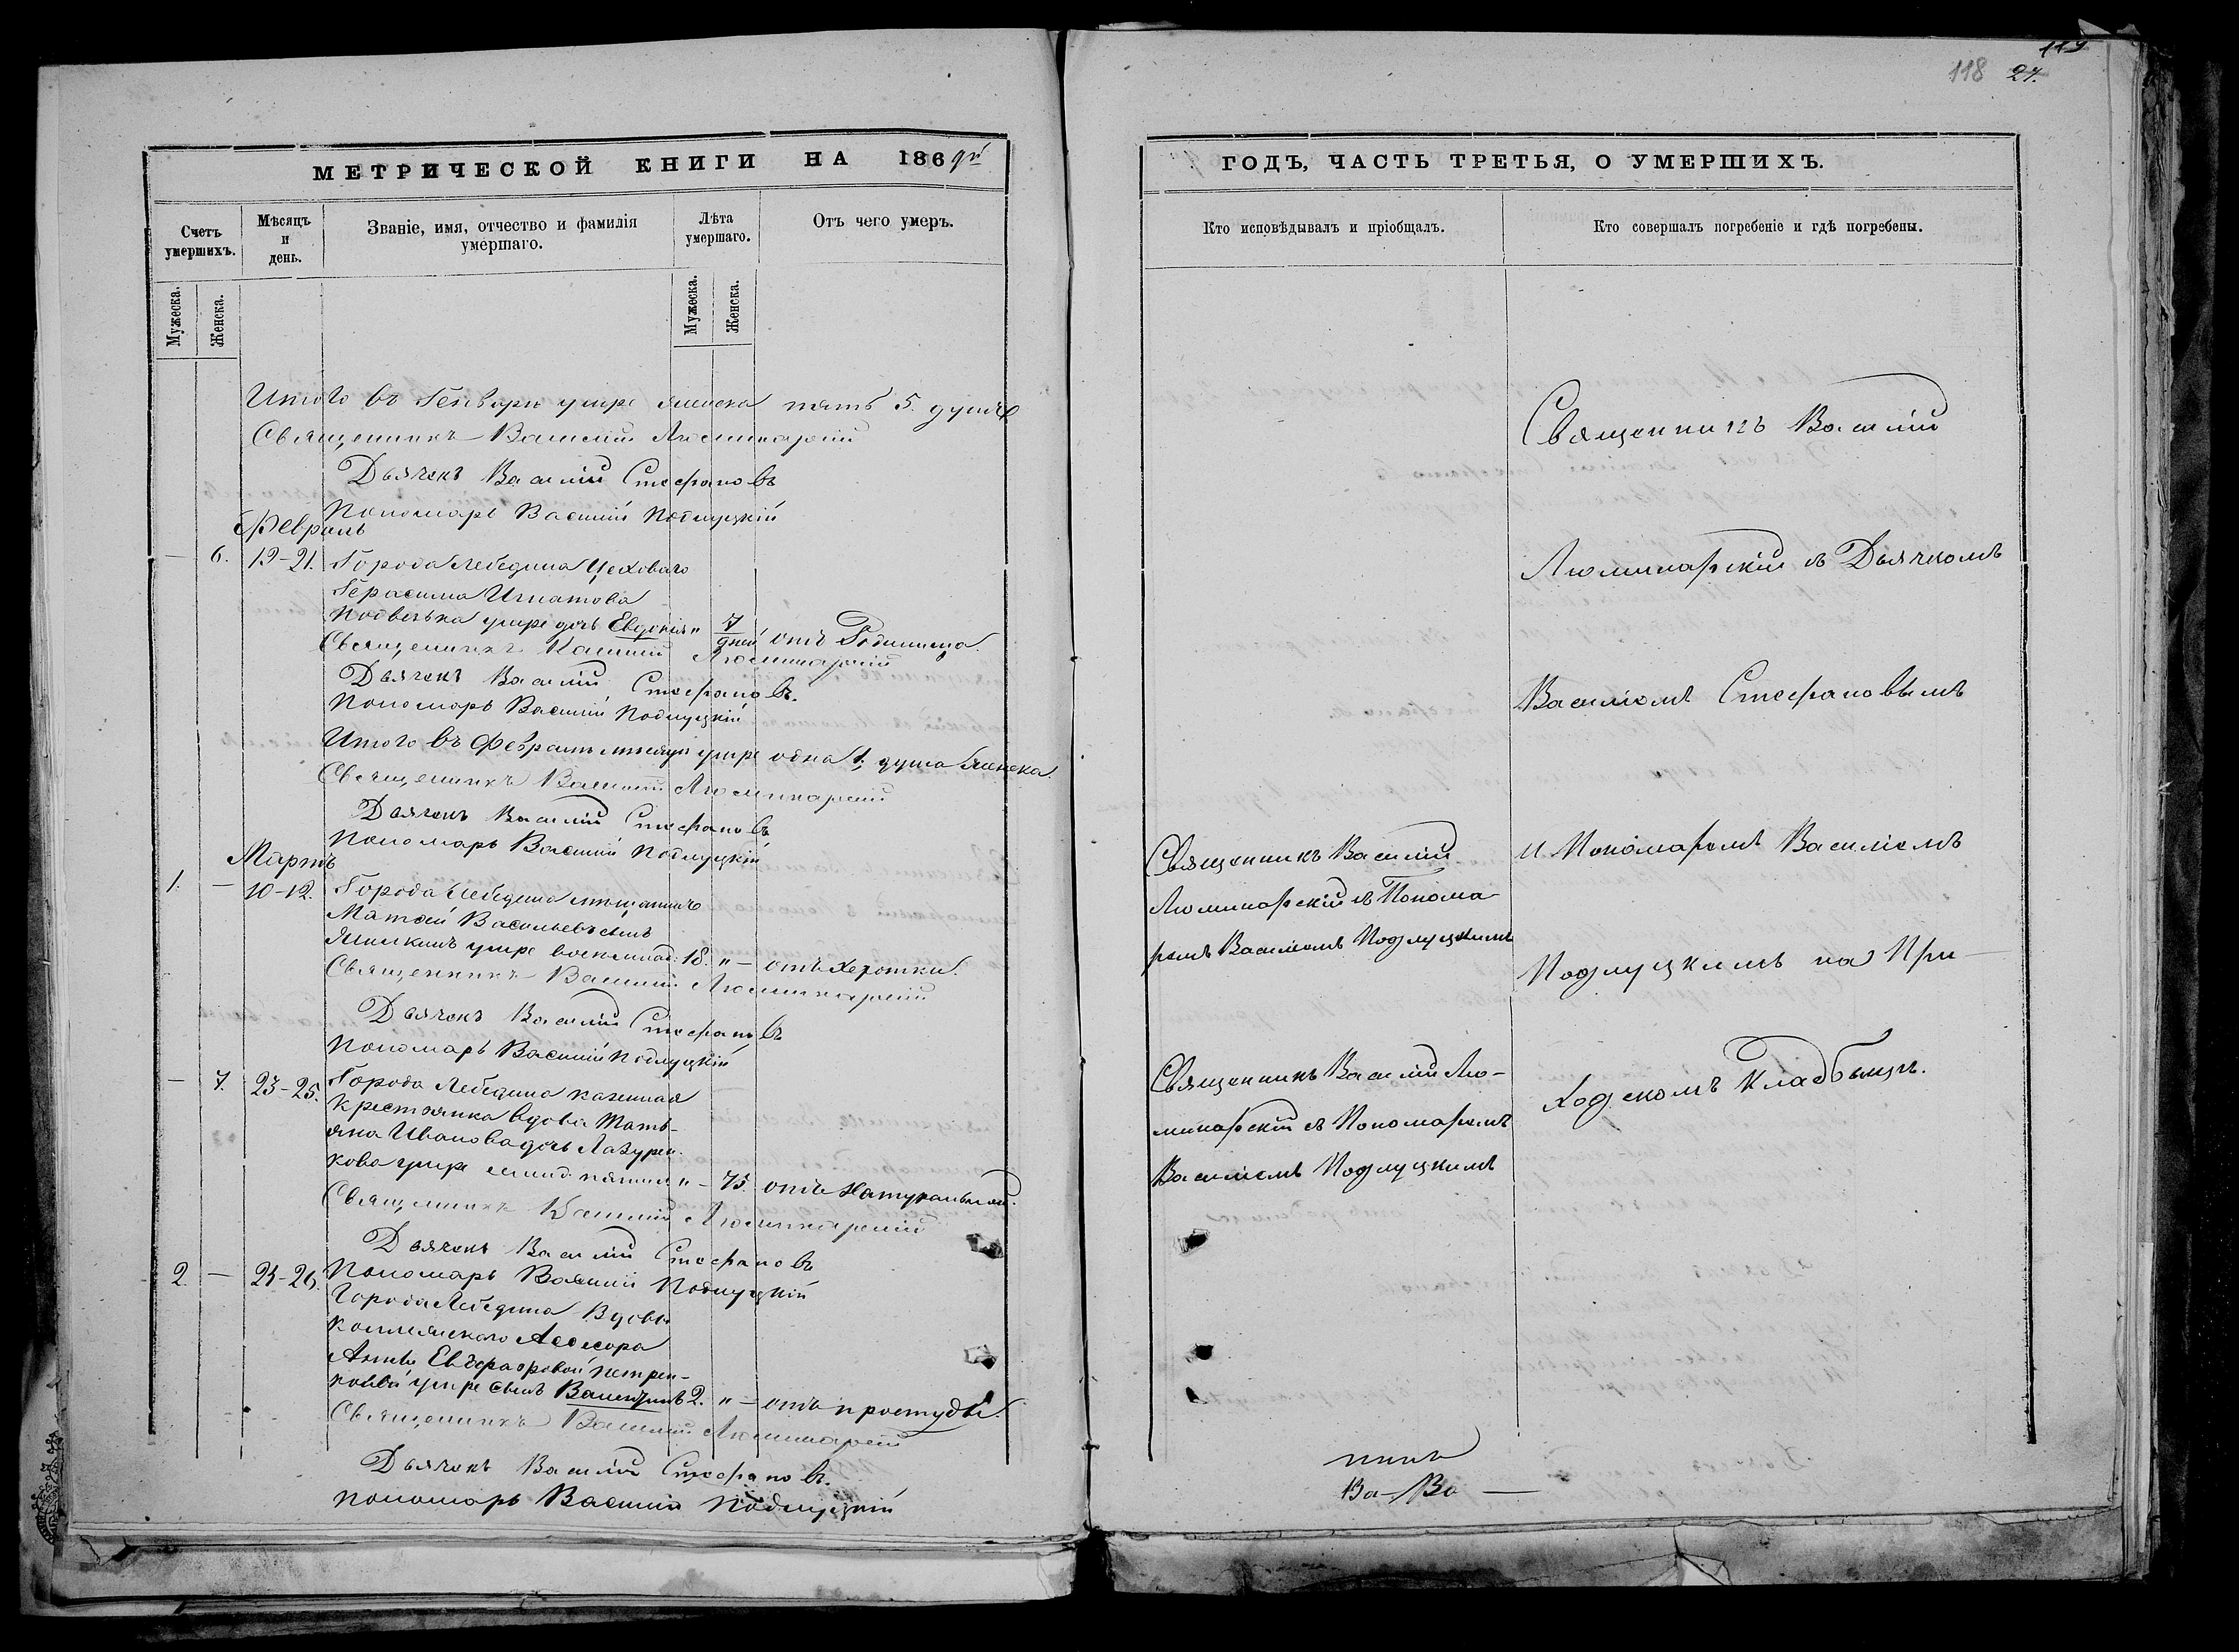 МЕТРИЧЕСКОЙ КНИГИ НА 1869й
Счетъ умершихъ.
Мѣсяцъ и день.
Званіе, имя, отчество и фамилія умершаго.
Лѣта умершаго.
Отъ чего умеръ.
Мужеска.
Женска.
Мужеска.
Женска.
Итого въ Генварѣ умре женска пять 5. душъ
Священникъ Василій Люминарскій
Дьячекъ Василій Стефановъ
Пономарь Василій Подлуцкій
Февраль
— 6. 19-21. Города Лебедина Цеховаго
Герасима Игнатова
умре дочь Евдокія " 7 дней отъ Родимца.
Священникъ Василій Люминарскій
Дьячекъ Василій Стефановъ.
Пономарь Василій Подлуцкій
Итого въ Февралѣ месяцѣ умре одна 1. душа женска.
Священникъ Василій Люминарскій
Дьячекъ Василій Стефановъ
Пономарь Василій Подлуцкій
Мартъ
1. — 10-12. Города Лебедина мѣщанинъ
Матфей Васильевъ сынъ
умре восемнад: 18. " — отъ Чехотки.
Священникъ Василій Люминарскій
Дьячекъ Василій Стефановъ
Пономарь Василій Подлуцкій
— 7. 23-25. Города Лебедина казенная
крестьянка вдова Тать-
яна Иванова дочь Лазурен-
кова умре " — 75. отъ Натуральной.
Священникъ Василій Люминарскій
Дьячекъ Василій Стефановъ
Пономарь Василій Подлуцкій
2. — 24-26. Города Лебедина Вдовы
коллежскаго Ассесора
Анны Евграфовой Петрен-
ковой умре сынъ Валентинъ 2. " — отъ простуды.
Священникъ Василій Люминарскій
Дьячекъ Василій Стефановъ.
пономарь Василій Подлуцкій
119
118 27.
ГОДЪ, ЧАСТЬ ТРЕТЬЯ, О УМЕРШИХЪ.
Кто исповѣдывалъ и пріобщалъ.
Кто совершалъ погребеніе и гдѣ погребены.
Священникъ Василій
Люминарскій съ Дьячкомъ
Василіемъ Стефановымъ
и Пономаремъ Василіемъ
Подлуцкимъ на При-
ходскомъ Кладбищѣ.
Священникъ Василій
Люминарскій съ Понома-
ремъ Василіемъ Подлуцкимъ
Священникъ Василій Лю-
минарскій съ Пономаремъ
Василіемъ Подлуцкимъ